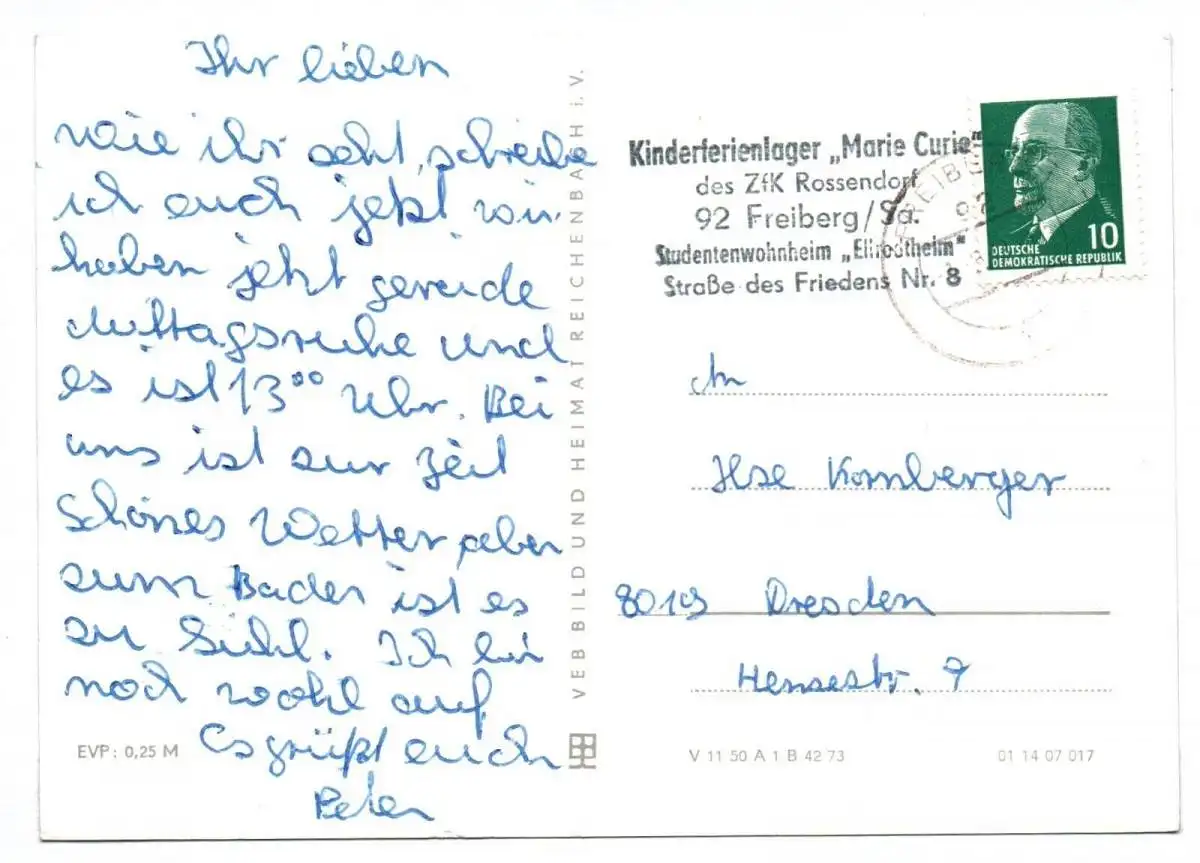 Ihr lieben
wie ihr seht, schreibe
ich euch jetzt wir
haben jetzt gerade
Mittagsruhe und
es ist 13⁰⁰ Uhr. Bei
uns ist zur Zeit
Schönes Wetter, aber
zum Baden ist es
zu kühl. Ich bin
noch wohl auf
Es grüßt euch
Peter
EVP: 0,25 M
VEB BILD UND HEIMAT REICHENBACH i. V.
Kinderferienlager „Marie Curie"
des ZfK Rossendorf
92 Freiberg/Sa.
Studentenwohnheim
Straße des Friedens Nr. 8
FREIBERG
92
10
DEUTSCHE
DEMOKRATISCHE REPUBLIK
An
Ilse Kornberger
8019 Dresden
Hensestr. 9
V 11 50 A 1 B 42 73
01 14 07 017